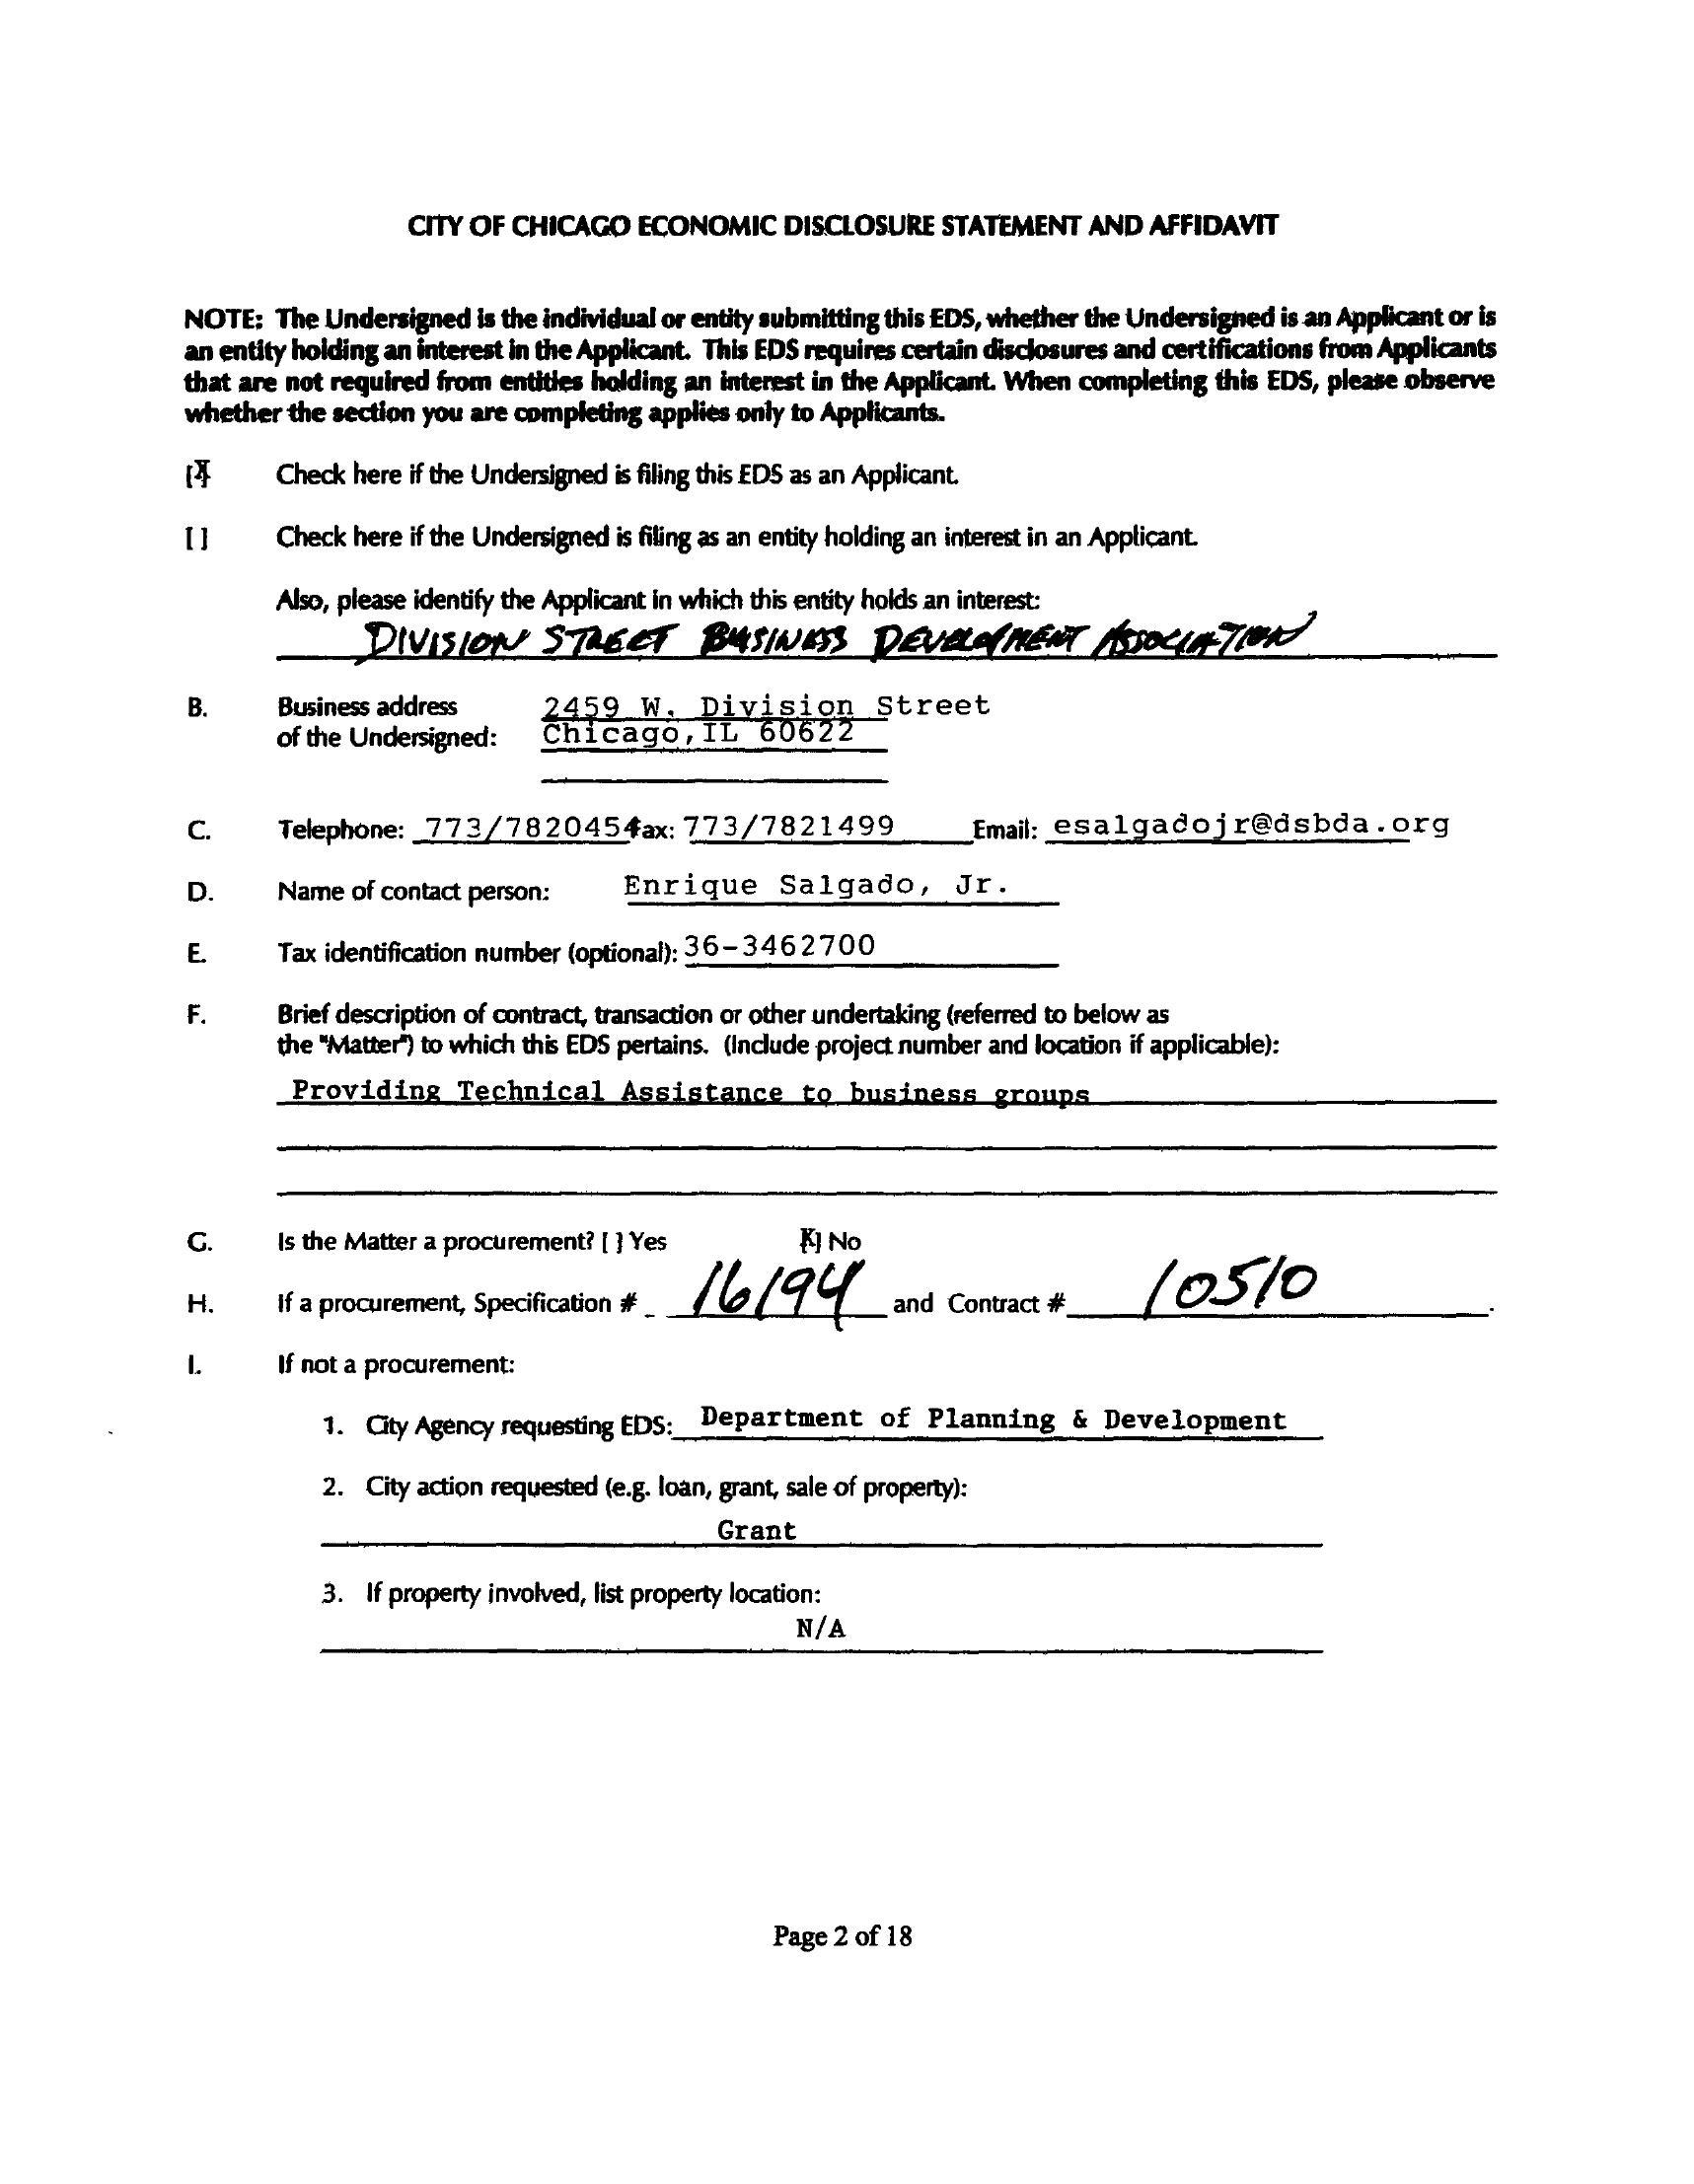 CITY OF CHICAGO ECONOMIC DISCLOSURE STATEMENT AND AFFIDAVIT
NOTE: The Undersigned is the individual or entity submitting this EDS, whether the Undersigned is an Applicant or is
an entity holding an interest in the Applicant. This EDS requires certain disclosures and certifications from Applicants
that are not required from entities holding an interest in the Applicant. When completing this EDS, please observe
whether the section you are completing applies only to Applicants.
[X] Check here if the Undersigned is filing this EDS as an Applicant.
[ ] Check here if the Undersigned is filing as an entity holding an interest in an Applicant.
Also, please identify the Applicant in which this entity holds an interest:
DIVISION STREET BUSINESS DEVELOPMENT ASSOCIATION
B. Business address 2459 W. Division Street
of the Undersigned: Chicago,IL 60622
C. Telephone: 773/7820454 fax: 773/7821499 Email: esalgadojr@dsbda.org
D. Name of contact person: Enrique Salgado, Jr.
E. Tax identification number (optional): 36-3462700
F. Brief description of contract, transaction or other undertaking (referred to below as
the "Matter") to which this EDS pertains. (Include project number and location if applicable):
Providing Technical Assistance to business groups
G. Is the Matter a procurement? [ ] Yes [X] No
H. If a procurement, Specification # 16194 and Contract # 10510.
I. If not a procurement:
1. City Agency requesting EDS: Department of Planning & Development
2. City action requested (e.g. loan, grant, sale of property):
Grant
3. If property involved, list property location:
N/A
Page 2 of 18